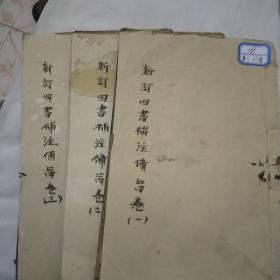 新訂四書補注備旨卷(一)
新訂四書補注備旨卷(二)
新訂四書補注備旨卷(三)